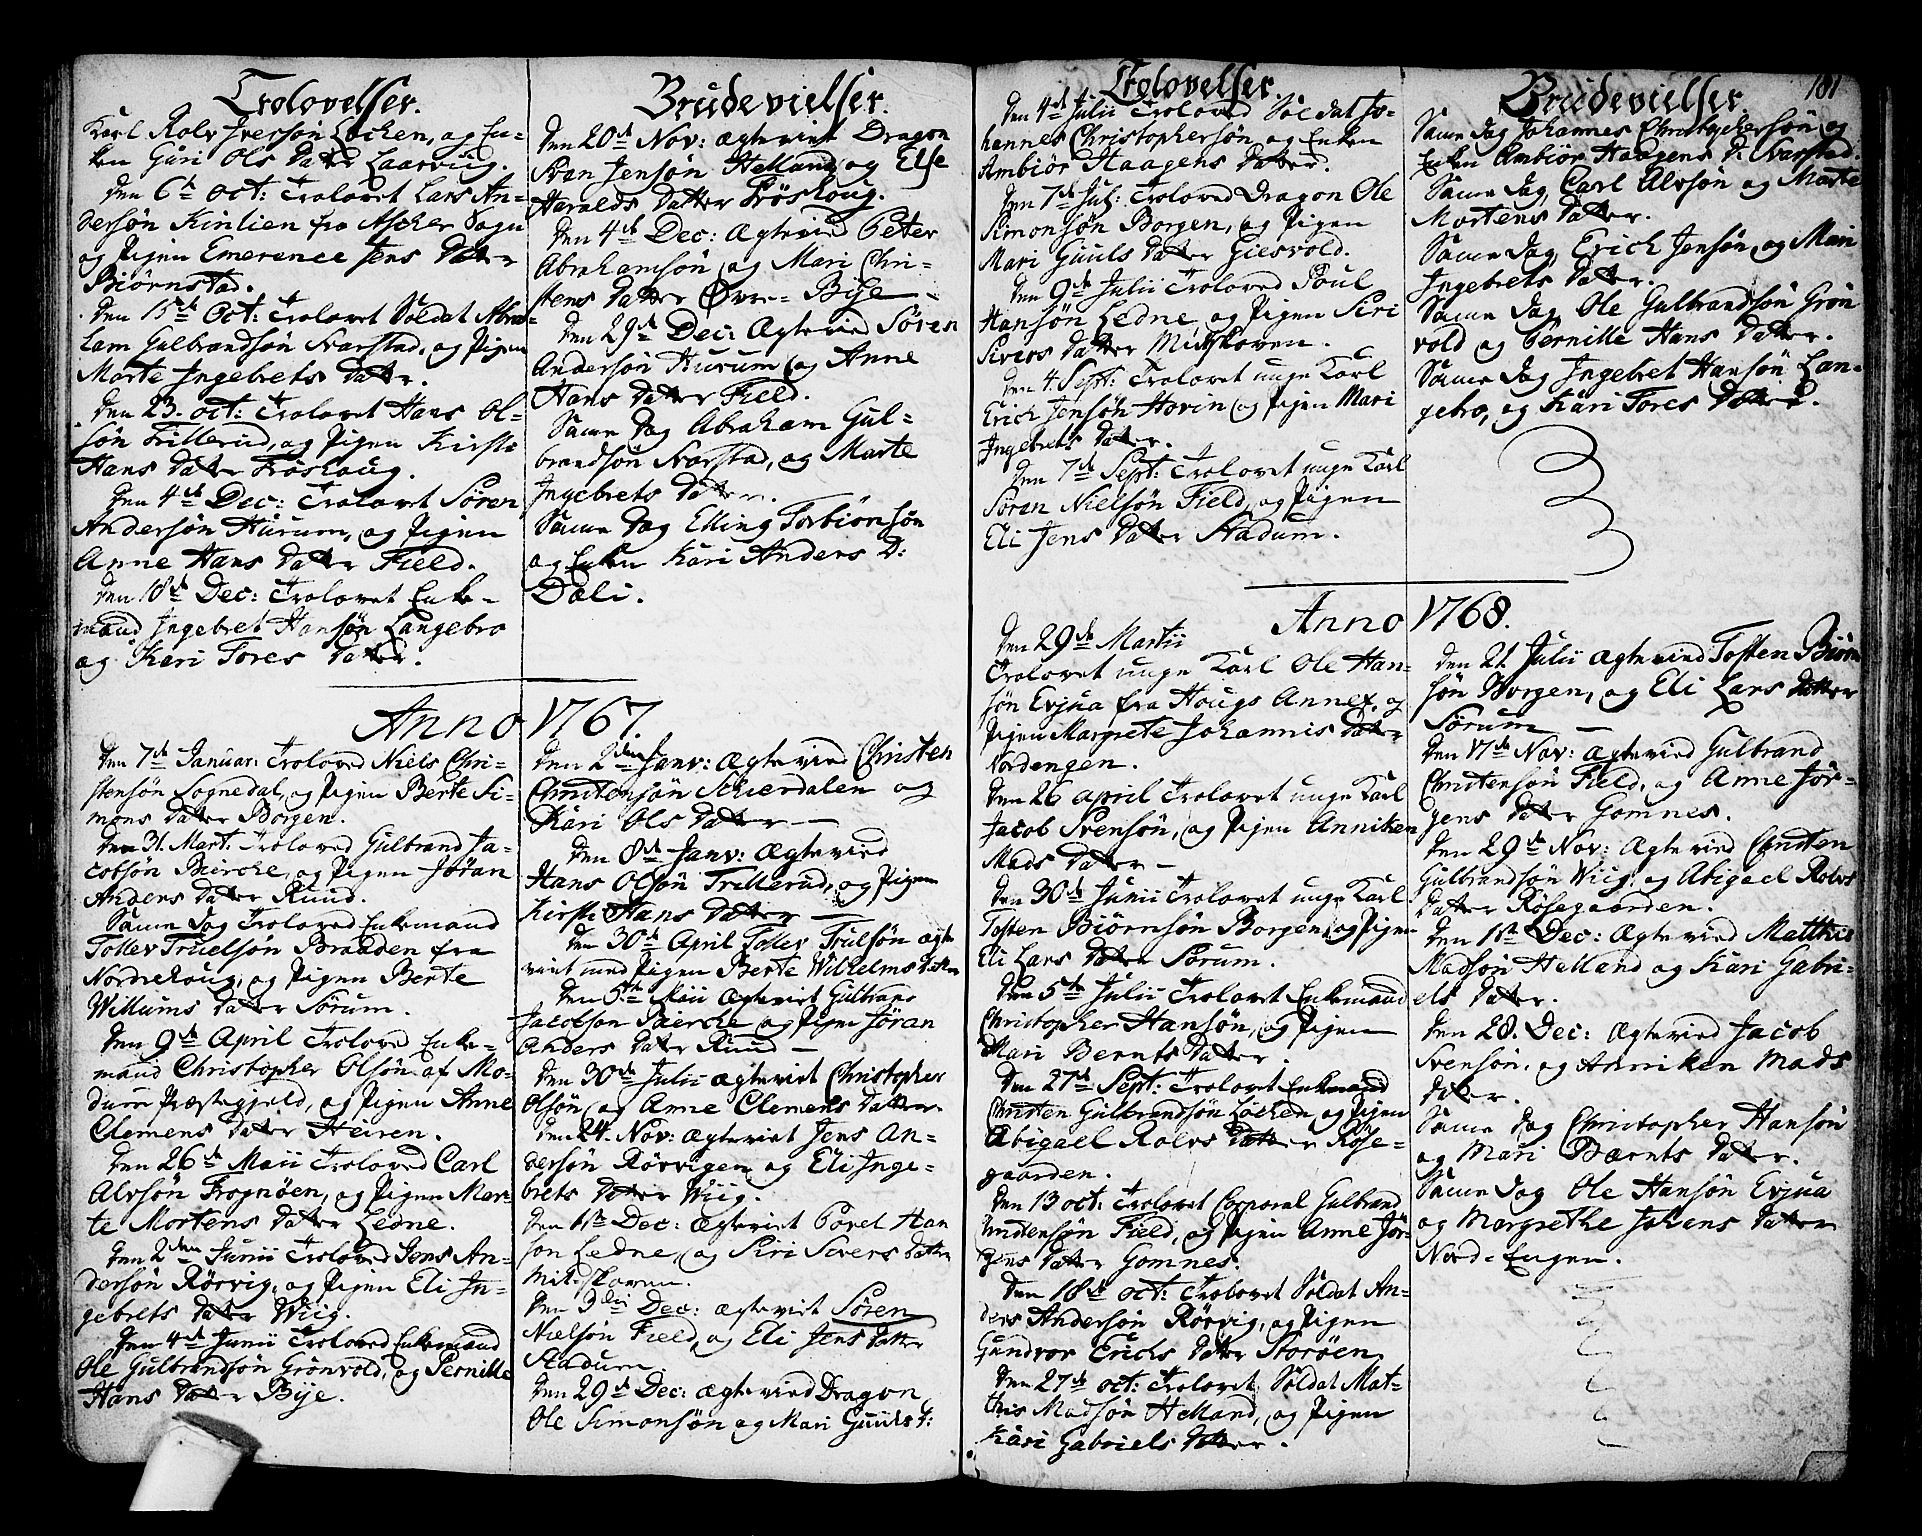 Trolovelser.
Karl Rolv Iversøn Løchen, og En-
ken Guri Ols Datter Laarviig.
Den 6te Oct: Trolovet Lars An-
dersøn Kinlien fra Ascher Sogn
og Pigen Emerence Jens Datter
Biørnstad.
Den 15de Oct: Trolovet Soldat Abra-
ham Gulbrandsøn Svarstad, og Pigen
Marte Ingebrets Datter.
Den 23. Oct: Trolovet Hans Ol-
søn Trillerud, og Pigen Kirsti
Hans Datter Frøshoug.
Den 4de Dec: Trolovet Søren
Andersøn Hurum, og Pigen
Anne Hans Datter Field.
Den 18de Dec: Trolovet Enke-
mand Ingebret Hansøn Langebro
og Kari Tores Datter.
Anno 1767.
Den 7de Januar: Troloved Niels Chri-
stensøn Sognedal, og Pigen Berte Si-
mons Datter Borgen.
Den 31. Mart. Troloved Gulbrand Ja-
cobsøn Bierche, og Pigen Jøran
Anders Datter Ruud.
Samme Dag Troloved Enkemand
Tollev Truelsøn Braaden fra
Nordrehoug, og Pigen Berte
Willums Datter Sørum.
Den 9de April Troloved Enke-
mand Christopher Olsøn af Mo-
dum Præstegjeld, og Pigen Anne
Clemens Datter Heiren.
Den 26de Maii Troloved Carl
Alvsøn Frognøen, og Pigen Mar-
te Mortens Datter Ledne.
Den 2den Junii Troloved Jens An-
dersøn Rørvig, og Pigen Eli In-
gebrets Datter Wiig.
Den 4de Junii Troloved Enkemand
Ole Gulbrandsøn Grønvold, og Pernille
Hans Datter Bije.
Brudevielser.
Den 20de Nov: Ægteviet Dragon
Svan Jensøn Helland og Else
Haralds Datter Frøshoug.
Den 4de Dec: Ægtevied Peter
Abrahamsøn, og Mari Chri-
stens Datter Øvre-Bije.
Den 29de Dec: Ægtevied Søren
Andersøn Hurum, og Anne
Hans Datter Field.
Samme Dag Abraham Gul-
brandsøn Svarstad, og Marte
Ingebrets Datter.
Samme Dag Elling Torbiørnsøn
og Enken Kari Anders D:
Dæli.
Den 2den Janv: Ægtevied Christen
Christensøn Schierdalen og
Kari Ols Datter —
Den 8de Janv: Ægtevied
Hans Olsøn Trillerud, og Pigen
Kirsti Hans Datter —
Den 30de April Tollev Trulsøn ægte
viet med Pigen Berte Wilhelms Datter
Den 5te Maii Ægteviet Gulbrand
Jacobsøn Bierche og Pigen Jøran
Anders Datter Ruud —
Den 30de Julii Ægteviet Christopher
Olsøn, og Anne Clemens Datter.
Den 24. Nov: Ægteviet Jens An-
dersøn Rørvigen og Eli Inge-
brets Datter Wiig.
Den 1ste Dec: Ægteviet Povel Han
søn Ledne, og Siri Sivers Datter
Mitskoven.
Den 3die Dec: Ægteviet Søren
Nielsøn Field, og Eli Jens Datter
Stadum.
Den 29de Dec: Ægtevied Dragon
Ole Simonsøn og Mari Guuls D:
Trolovelser.
Den 4de Julii Troloved Soldat Jo-
hannes Christophersøn og Enken
Ambiør Haagens Datter.
Den 7de Jul: Troloved Dragon Ole
Simonsøn Borgen, og Pigen
Mari Guuls Datter Giesvold.
Den 9de Julii Troloved Poul
Hansøn Ledne, og Pigen Siri
Sivers Datter Mitskoven.
Den 4 Sept: Trolovet unge Karl
Erich Jensøn Hovin, og Pigen Mari
Ingebrets Datter.
Den 7de Sept: Trolovet unge Karl
Søren Nielsøn Field, og Pigen
Eli Jens Datter Stadum.
Anno 1768.
Den 29de Martii
Trolovet unge Karl Ole Han-
søn Evjua fra Hougs Annex, og
Pigen Margrete Johannis Datter
Nordengen.
Den 26 April Trolovet unge Karl
Jacob Svensøn, og Pigen Anniken
Mads Datter —
Den 30de Junii Trolovet unge Karl
Tosten Biørnsøn Borgen, og Pigen
Eli Lars Datter Sørum.
Den 5te Julii Trolovet Enkemand
Christopher Hansøn, og Pigen
Mari Bernts Datter.
Den 27de Sept: Trolovet Enkemand
Christen Gulbrandsøn Løchen og Pigen
Abigael Rolvs Datter Røse-
gaarden.
Den 13 Oct: Trolovet Corporal Gulbrand
Christensøn Field, og Pigen Anne Jør-
gens Datter Gomnes.
Den 18de Oct: Trolovet Soldat An-
ders Andersøn Rørvig, og Pigen
Gundvor Erichs Datter Storøen.
Den 27de Oct: Trolovet Soldat Mat-
this Madsøn Helland, og Pigen
Kari Gabriels Datter.
Brudevielser.
181
Samme Dag Johannes Christophersøn og
Enken Ambiør Haagens D: Svarstad.
Samme Dag, Carl Alvsøn og Marte
Mortens Datter.
Samme Dag, Erich Jensøn, og Mari
Ingebrets Datter.
Samme Dag, Ole Gulbrandsøn Grøn
vold og Pernille Hans Datter.
Samme Dag Ingebret Hansøn Lan-
gebro, og Kari Tores Datter.
Den 21 Julii Ægtevied Tosten Biørn
søn Borgen, og Eli Lars Datter
Sørum —
Den 17de Nov: Ægtevied Gulbrand
Christensøn Field, og Anne Jør-
gens Datter Gomnes.
Den 29de Nov: Ægtevied Christen
Gulbrandsøn Wiig, og Abigael Rolvs
Datter Røsegaarden.
Den 1ste Dec: Ægtevied Matthis
Madsøn Helland og Kari Gabri-
els Datter.
Den 28. Dec: Ægtevied Jacob
Svensøn, og Anniken Mads
Datter.
Samme Dag Christopher Hansøn
og Mari Bærnts Datter.
Samme Dag Ole Hansøn Evjua
og Margrethe Johans Datter
Nord-Engen.